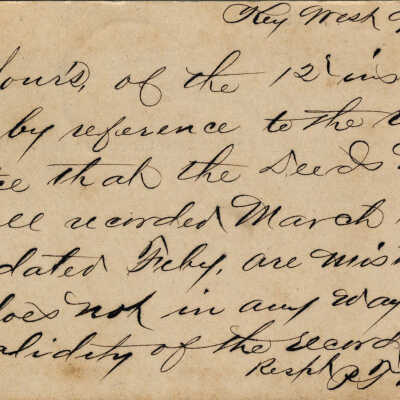 Key West
Yours, of the 12' ins
by reference to the
ce that the Deeds
ll recorded March
dated Feby, are mis
does not in any way
alidity of the record
Respl